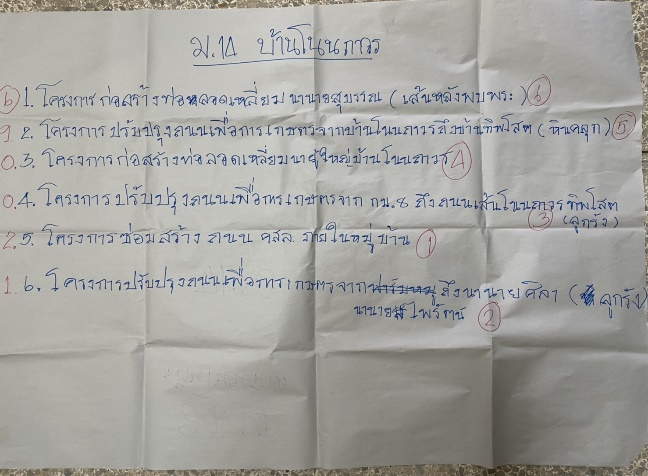 ม.14 บ้านโนนถาวร
6 1. โครงการก่อสร้างท่อลอดเหลี่ยม นานายสุบรรณ (เส้นหลังพบพระ) 6
9 2. โครงการปรับปรุงถนนเพื่อการเกษตรจากบ้านโนนถาวรถึงบ้านทิพโสต (หินคลุก) 5
0. 3. โครงการก่อสร้างท่อลอดเหลี่ยมนาผู้ใหญ่บ้านโนนถาวร 4
0. 4. โครงการปรับปรุงถนนเพื่อการเกษตรจาก กม.8 ถึงถนนเส้นโนนถาวรทิพโสต
3 (ลูกรัง)
2. 5. โครงการซ่อมสร้าง ถนน คสล. ภายในหมู่บ้าน 1
1. 6. โครงการปรับปรุงถนนเพื่อการเกษตรจาก ถึงนานายศิลา (ลูกรัง)
นานายไพรัตน์ 2